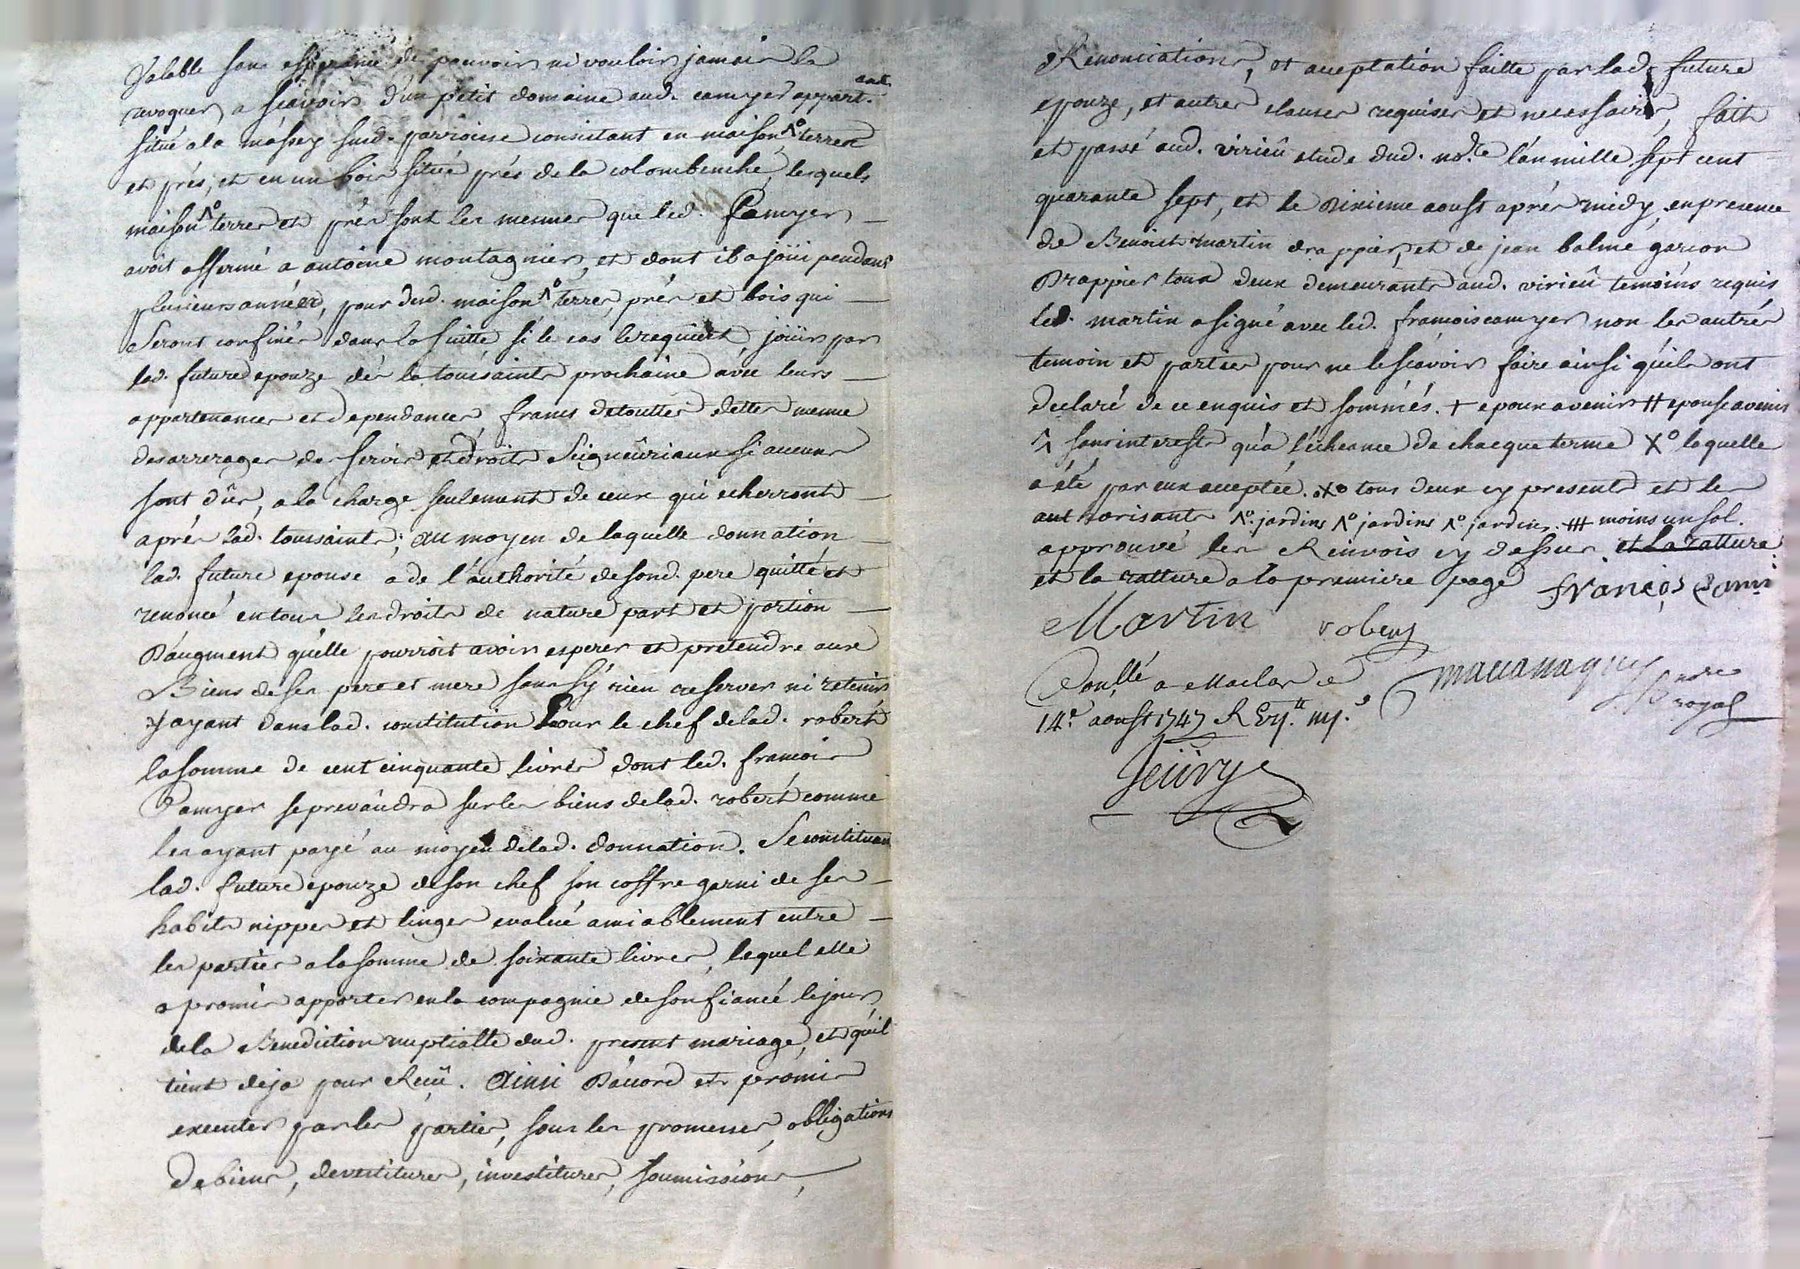 valable sans esperance de pouvoir ni vouloir jamais la
revoquer, a sçavoir d'un petit domaine aud. camyer appart.ant
situé a la massey susd. parroisse consistant en maison ^o terres
et prés, et en un bois situé prés de la colombenche, lesquels
maison ^o terres et prés sont les mesmes que led. Camyer
avoit affermé a antoine montagnier, et dont il a joüi pendant
plusieurs années, pour dud. maison ^o terres, prés et bois qui
seront confinés dans la suitte si le cas le requiert, joüir par
lad. future epouze dés la toussaints prochaine avec leurs
appartenances et dependances, francs de touttes dettes mesme
des arrerages de servis et droits Seigneûriaux si aucuns
sont dûs, a la charge seulement de ceux qui echerront
aprés lad. toussaints; au moyen de laquelle donnation
lad. future epouse a de l'authorité de sond. pere quitté et
renoncé en tous les droits de nature part et portion
d'augment qu'elle pourroit avoir esperer et pretendre aux
Biens de ses pere et mere sans s'y rien reserver ni retenir
y ayant dans lad. constitution pour le chef de lad. robert
la somme de cent cinquante livres dont led. francois
Camyer se prevaudra sur les biens de lad. robert comme
les ayant payé au moyen de lad. donnation. Se constituant
lad. future epouze de son chef son coffre garni de ses
habits nippes et linges evalué amiablement entre
les parties a la somme de soixante livres, lequel elle
a promis apporter en la compagnie de son fiancé le jour
de la Benediction nuptialle dud. present mariage, et qu'il
tient deja pour Reçû. Ainsi d'accord et promis
executer par les parties, sous les promesses, obligations
de biens, devestitures, investitures, soumissions,
Renonciations, et acceptation faitte par lad. future
epouze, et autres clauses requises et necessaires, fait
et passé aud. virieû etude dud. no.re l'an mille sept cent
quarante sept, et le dixieme aoust aprés midy, en presence
de Benoist martin drappier, et de jean balme garçon
Drappier tous deux demeurants aud. virieû temoins requis
led. martin a signé avec led. francois camyer non les autres
temoin et parties pour ne le sçavoir faire ainsi qu'ils ont
declaré de ce enquis et sommés. + epoux a venir ++ epouse a venir
^ sans interests qu'a l'écheance de chacque terme X° laquelle
a été par eux acceptée. .X° tous deux cy presents et les
authorisants ^o. jardins ^o jardins ^o jardins. +++ moins un sol.
approuvé les Renvois cy dessus et la ratture
et la ratture a la premiere page françois Cami
Martin robert
Conllé a Maclas ce
14.e aoust 1747 R
Jeüry
royal